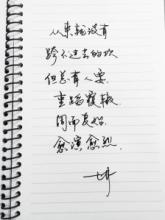 从来都没有
跨不过去的坎
但总有人要
重蹈覆辙
周而复始
愈演愈烈